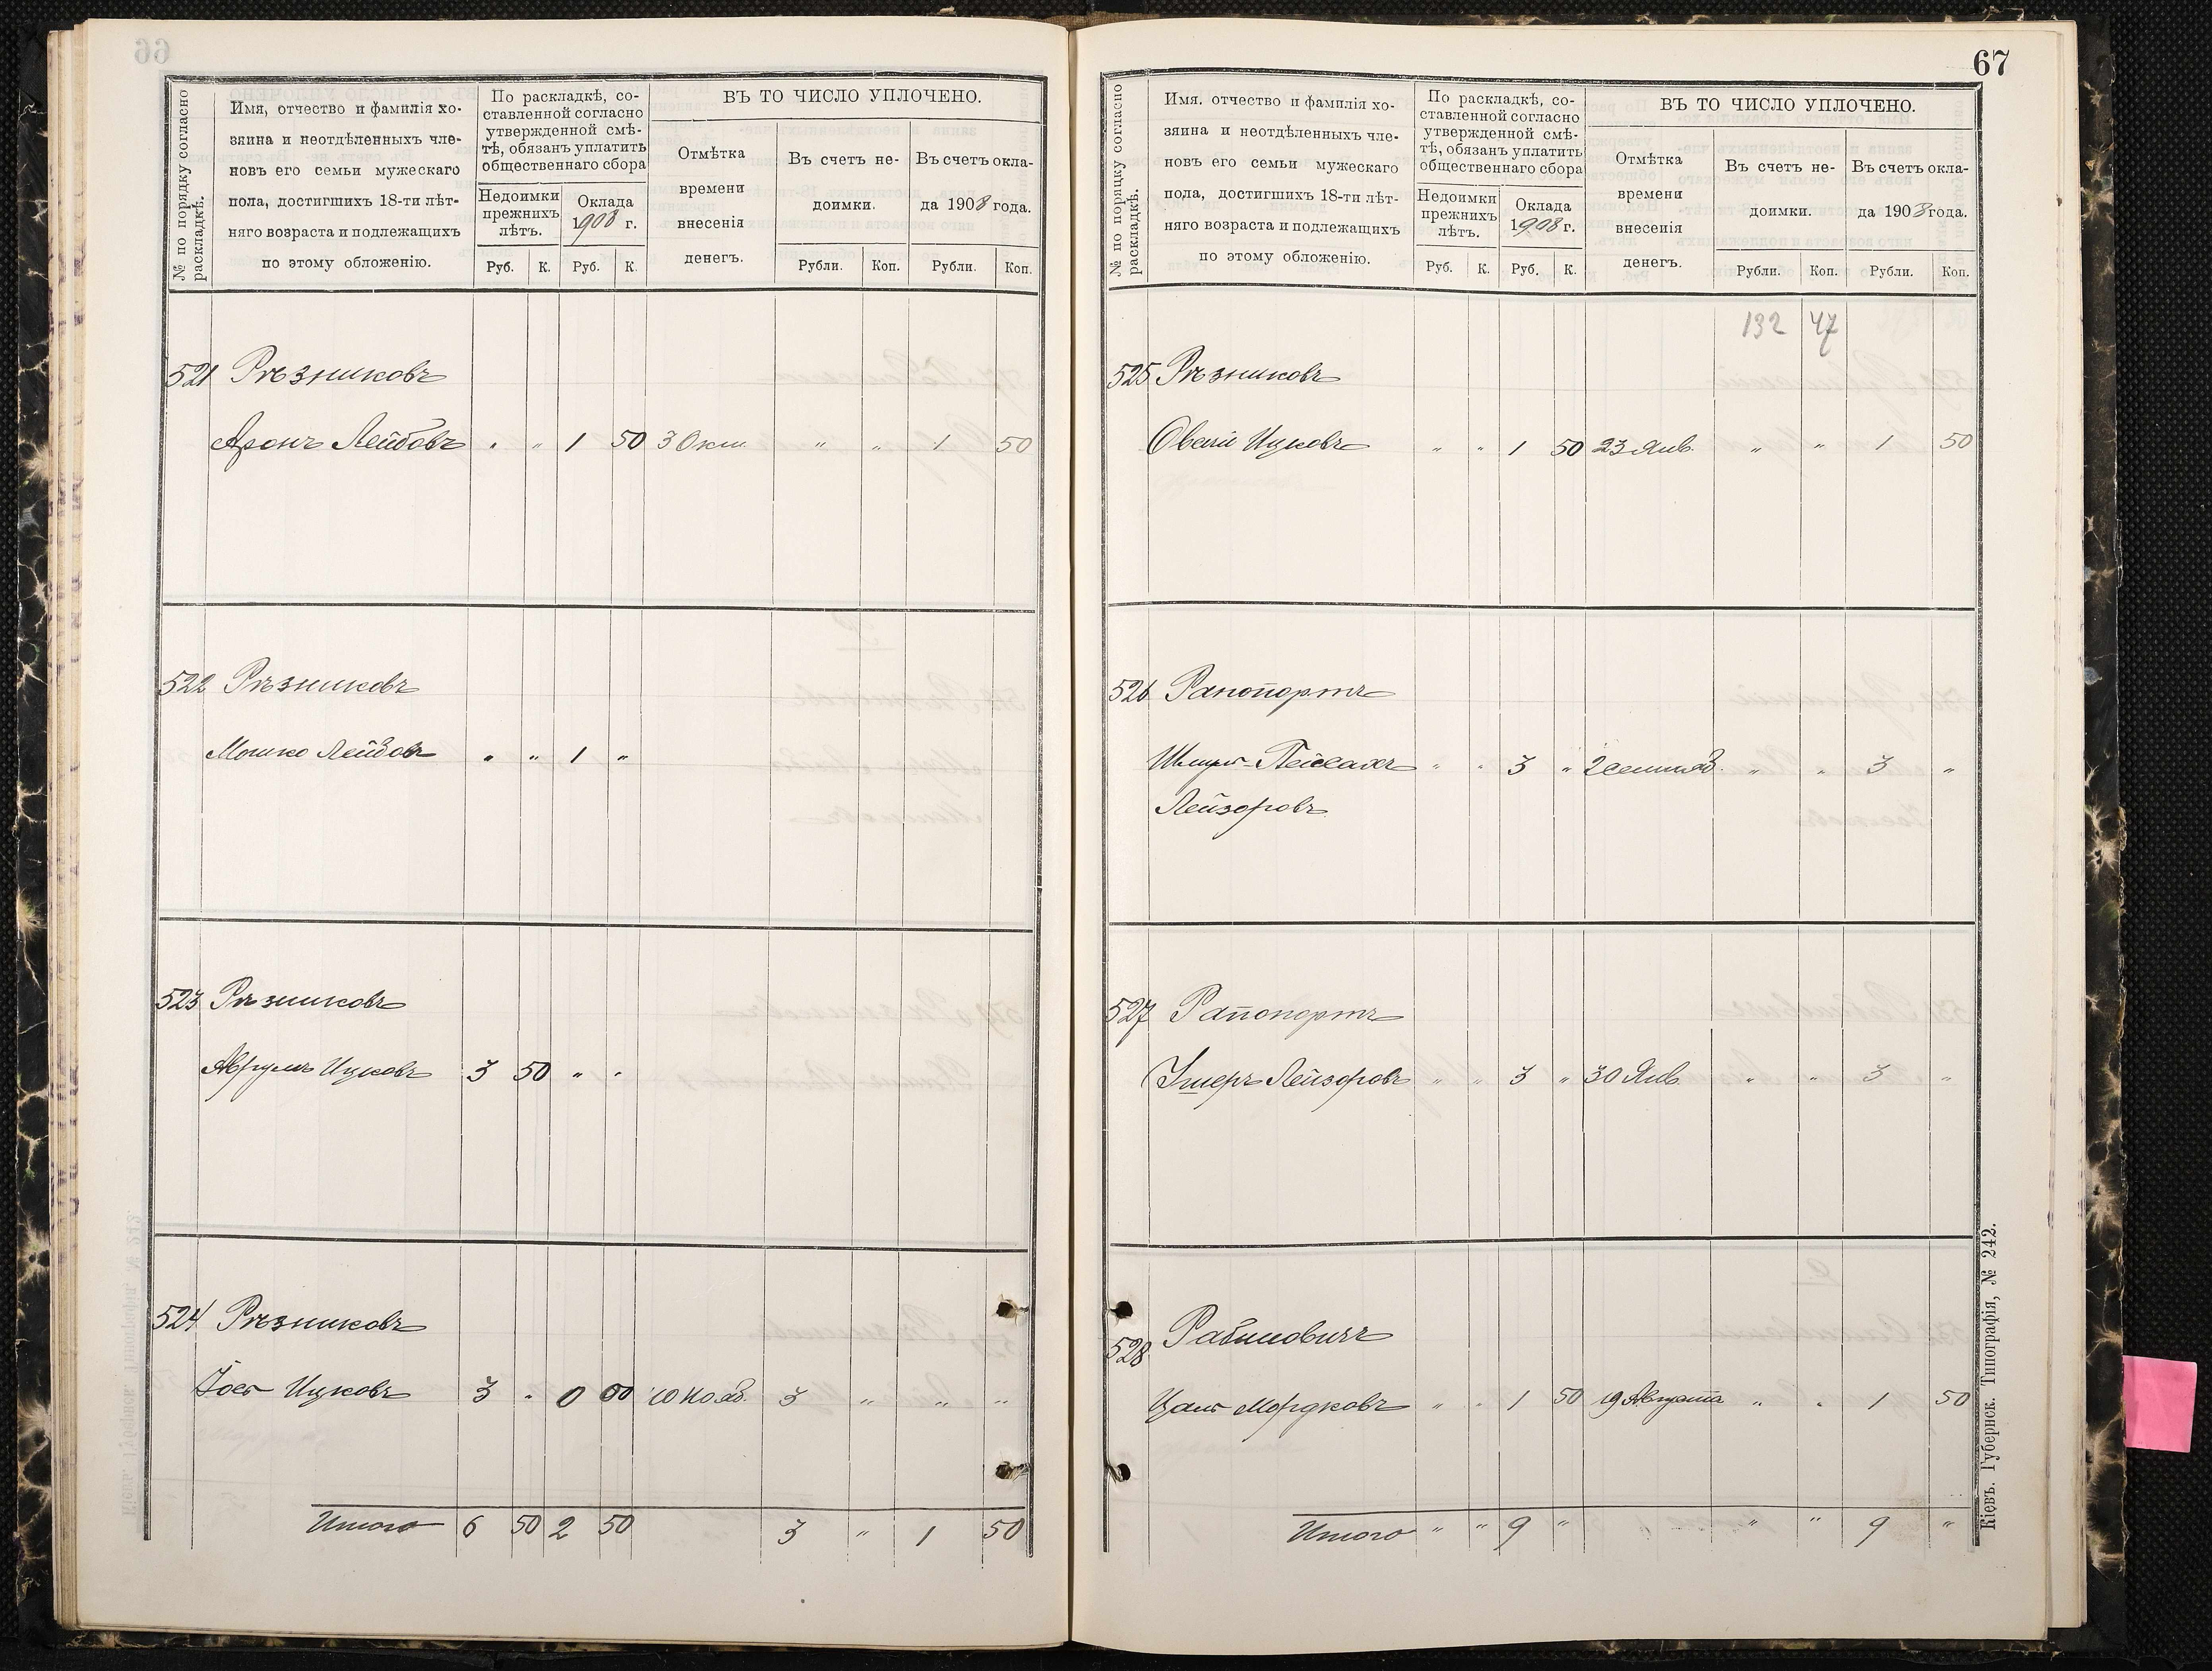 № по порядку согласно
раскладкѣ.
Имя, отчество и фамилія хо-
зяина и неотдѣленныхъ чле-
новъ его семьи мужескаго
пола, достигшихъ 18-ти лѣт-
няго возраста и подлежащихъ
по этому обложенію.
По раскладкѣ, со-
ставленной согласно
утвержденной смѣ-
тѣ, обязанъ уплатить
общественнаго сбора
Недоимки
прежнихъ
лѣтъ.
Оклада
1908 г.
Руб. К. Руб. К.
ВЪ ТО ЧИСЛО УПЛОЧЕНО.
Отмѣтка
времени
внесенія
денегъ.
Въ счетъ не-
доимки.
Въ счетъ окла-
да 1908 года.
Рубли. Коп. Рубли. Коп.
521 Рѣзниковъ
Аронъ Лейбовъ " " 1 50 3 Окт. " " 1 50
522 Рѣзниковъ
Мошко Лейбовъ " " 1 "
523 Рѣзниковъ
Аврумъ Ицковъ 3 50 " "
524 Рѣзниковъ
Іось Ицковъ 3 " 0 00 10 Нояб. 3 " " "
Итого 6 50 2 50 3 " 1 50
67
№ по порядку согласно
раскладкѣ.
Имя, отчество и фамилія хо-
зяина и неотдѣленныхъ чле-
новъ его семьи мужескаго
пола, достигшихъ 18-ти лѣт-
няго возраста и подлежащихъ
по этому обложенію.
По раскладкѣ, со-
ставленной согласно
утвержденной смѣ-
тѣ, обязанъ уплатить
общественнаго сбора
Недоимки
прежнихъ
лѣтъ.
Оклада
1908 г.
Руб. К. Руб. К.
ВЪ ТО ЧИСЛО УПЛОЧЕНО.
Отмѣтка
времени
внесенія
денегъ.
Въ счетъ не-
доимки.
Въ счетъ окла-
да 1908 года.
Рубли. Коп. Рубли. Коп.
132 47
525 Рѣзниковъ
Овсій Ицковъ " " 1 50 23 Янв. " " 1 50
526 Рапопортъ
Пейсахъ " " 3 " 2 Сентяб. " " 3 "
Лейзоровъ
527 Рапопортъ
Ушеръ Лейзоровъ " " 3 " 30 Янв. " " 3 "
528 Рабиновичъ
Цаль Мордковъ " " 1 50 19 Августа " " 1 50
Итого " " 9 " " " 9 "
Кіевъ. Губернск. Типографія, № 242.